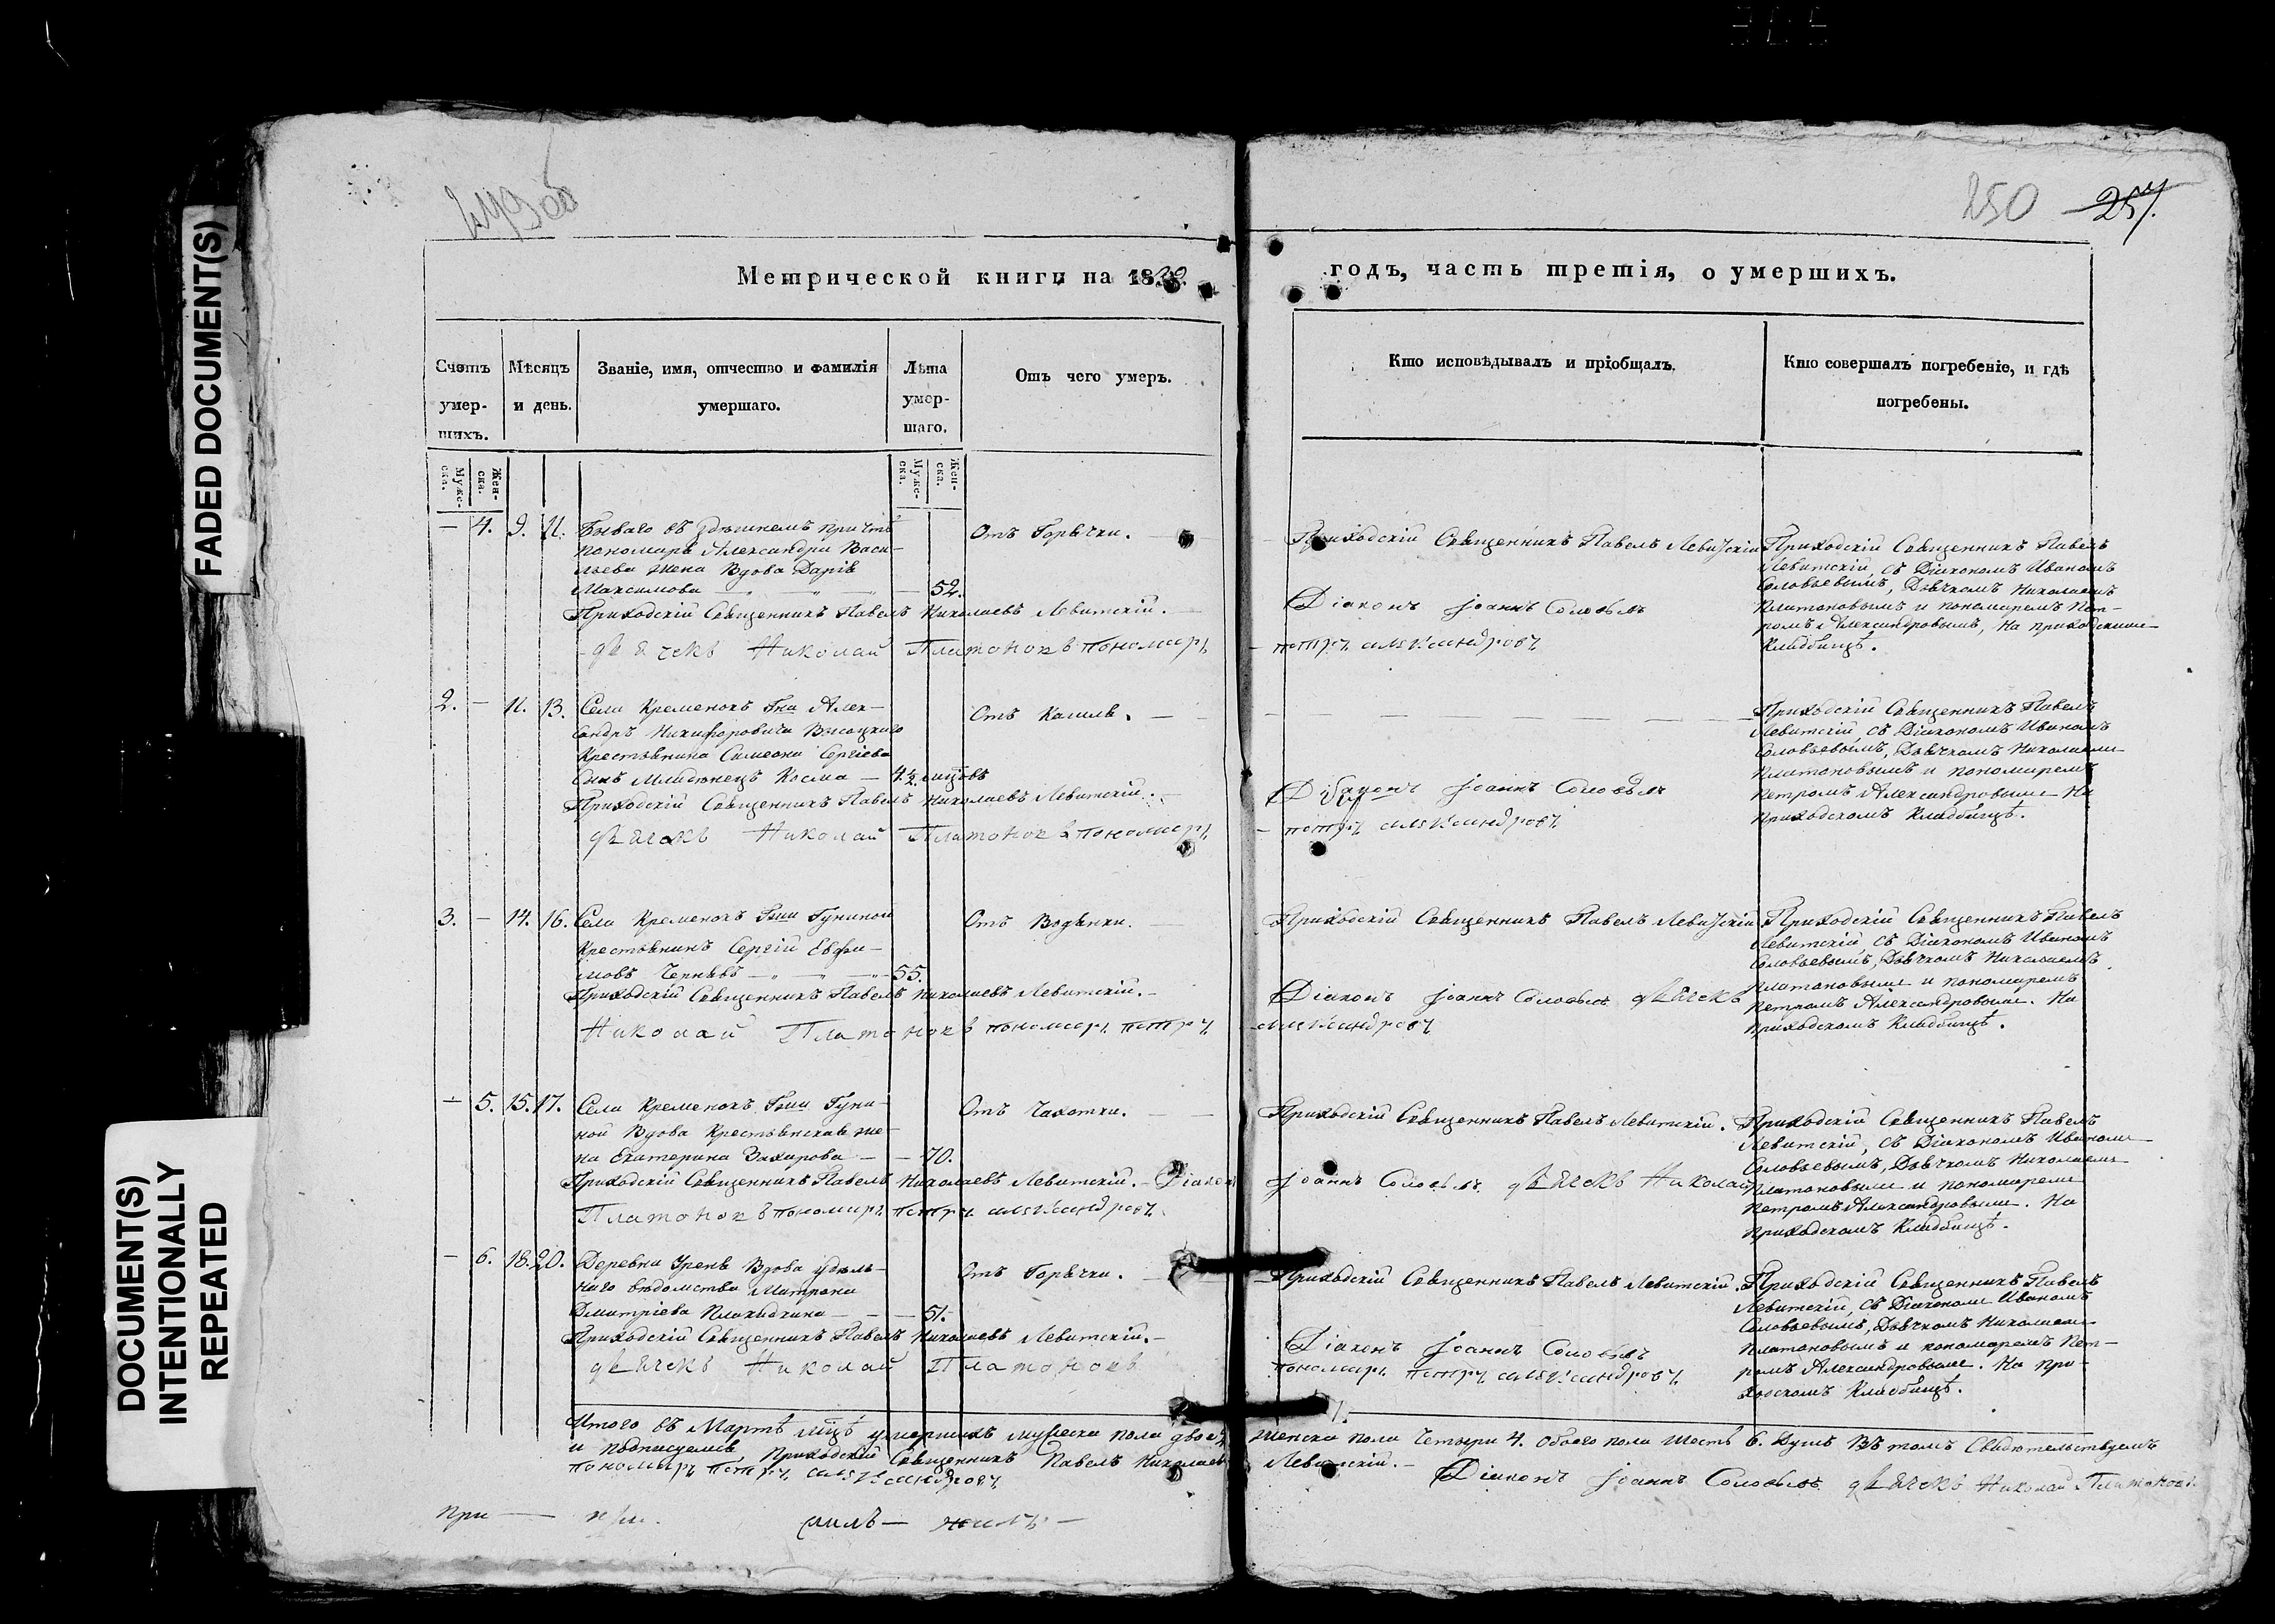 FADED DOCUMENT(S)
DOCUMENT(S)
INTENTIONALLY
REPEATED
249об
250 257.
Метрической книги на 18
годъ, часть третія, о умершихъ.
Счетъ умер-шихъ.
Мѣсяцъ и день.
Званіе, имя, отчество и фамилія умершаго.
Лѣта умер-шаго.
Отъ чего умеръ.
Кто исповѣдывалъ и пріобщалъ.
Кто совершалъ погребеніе, и гдѣ погребены.
Мужс-ска.
Жен-ска.
Мужс-ска.
Жен-ска.
— 4. 9. 11. Бываго въ здѣшнемъ причтѣ
пономаря Александра Васи-
льева жена Вдова Дарія
Максимова — 52.
Отъ Горячки.
Приходскій Священникъ Павелъ Левитскій
Приходскій Священникъ Павелъ
Левитскій, съ Діакономъ Иваномъ
Соловьевымъ, Дьячкомъ Николаемъ
Платоновымъ и пономаремъ Пет-
ромъ Александровымъ, На приходскомъ
Кладбищѣ.
Приходскій Священникъ Павелъ Николаевъ Левитскій.
Діаконъ Іоаннъ Соловьевъ
дьячекъ Николай Платоновъ пономарь
петръ александровъ
2. — 11. 13. Села Кременокъ Гна Алек-
сандръ Никифоровича Высоцкаго
Крестьянина Симеона Сергіева
Сынъ Младенецъ Косма — 4½ мцовъ
Отъ Кашля.
Приходскій Священникъ Павелъ
Левитскій, съ Діакономъ Иваномъ
Соловьевымъ, Дьячкомъ Николаемъ
Платоновымъ и пономаремъ
Петромъ Александровымъ На
приходскомъ Кладбищѣ.
Приходскій Священникъ Павелъ Николаевъ Левитскій.
Діаконъ Іоаннъ Соловьевъ
дьячекъ Николай Платоновъ пономарь
петръ александровъ
3. — 14. 16. Села Кременокъ Гжи Гуниной
Крестьянинъ Сергій Евфи-
мовъ — 55.
Отъ Водянки.
Приходскій Священникъ Павелъ Левитскій
Приходскій Священникъ Павелъ
Левитскій, съ Діакономъ Иваномъ
Соловьевымъ, Дьячкомъ Николаемъ
Платоновымъ и пономаремъ
Петромъ Александровымъ. На
приходскомъ Кладбищѣ.
Приходскій Священникъ Павелъ Николаевъ Левитскій.
Діаконъ Іоаннъ Соловьевъ дьячекъ
Николай Платоновъ пономарь петръ
александровъ
— 5. 15. 17. Села Кременокъ Гжи Гуни-
ной Вдова Крестьянская же-
на Екатерина Захарова — 70.
Отъ Чахотки.
Приходскій Священникъ Павелъ Левитскій.
Приходскій Священникъ Павелъ
Левитскій, съ Діакономъ Иваномъ
Соловьевымъ, Дьячкомъ Николаемъ
Платоновымъ и пономаремъ
Петромъ Александровымъ. На
приходскомъ Кладбищѣ.
Приходскій Священникъ Павелъ Николаевъ Левитскій. Діаконъ Іоаннъ Соловьевъ дьячекъ Николай
Платоновъ пономарь петръ александровъ.
— 6. 18. 20. Деревни Урень Вдова удѣль-
наго вѣдомства Матрона
Дмитріева — 51.
Отъ Горячки.
Приходскій Священникъ Павелъ Левитскій.
Приходскій Священникъ Павелъ
Левитскій, съ Діакономъ Иваномъ
Соловьевымъ, Дьячкомъ Николаемъ
Платоновымъ и пономаремъ Пет-
ромъ Александровымъ. На при-
ходскомъ Кладбищѣ.
Приходскій Священникъ Павелъ Николаевъ Левитскій.
Діаконъ Іоаннъ Соловьевъ
дьячекъ Николай Платоновъ
пономарь петръ александровъ
Итого въ Мартѣ мцѣ умершихъ мужеска пола двое женска пола Четыри 4. обоего пола Шесть 6. Душъ Въ томъ Свидѣтельствуемъ
и подписуемся Приходскій Священникъ Павелъ Николаевъ Левитскій.
Діаконъ Іоаннъ Соловьевъ дьячекъ Николай Платоновъ
пономарь петръ александровъ
при